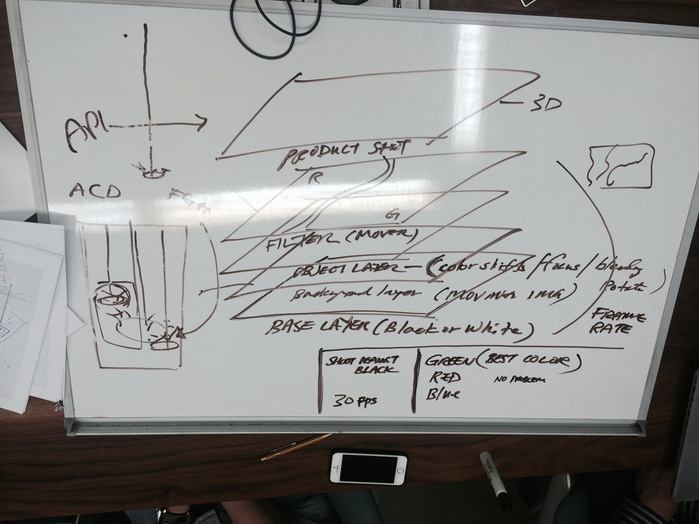 API
3D
PRODUCT SHOT
R
ACD
G
FILTER (MOVER)
OBJECT LAYER — (color shifts / focus /
Background layer (MOVING IMG)
BASE LAYER (Black or White)
FRAME
RATE
SHOOT AGAINST
BLACK
30 FPS
GREEN (BEST COLOR)
RED NO PROBLEM
Blue